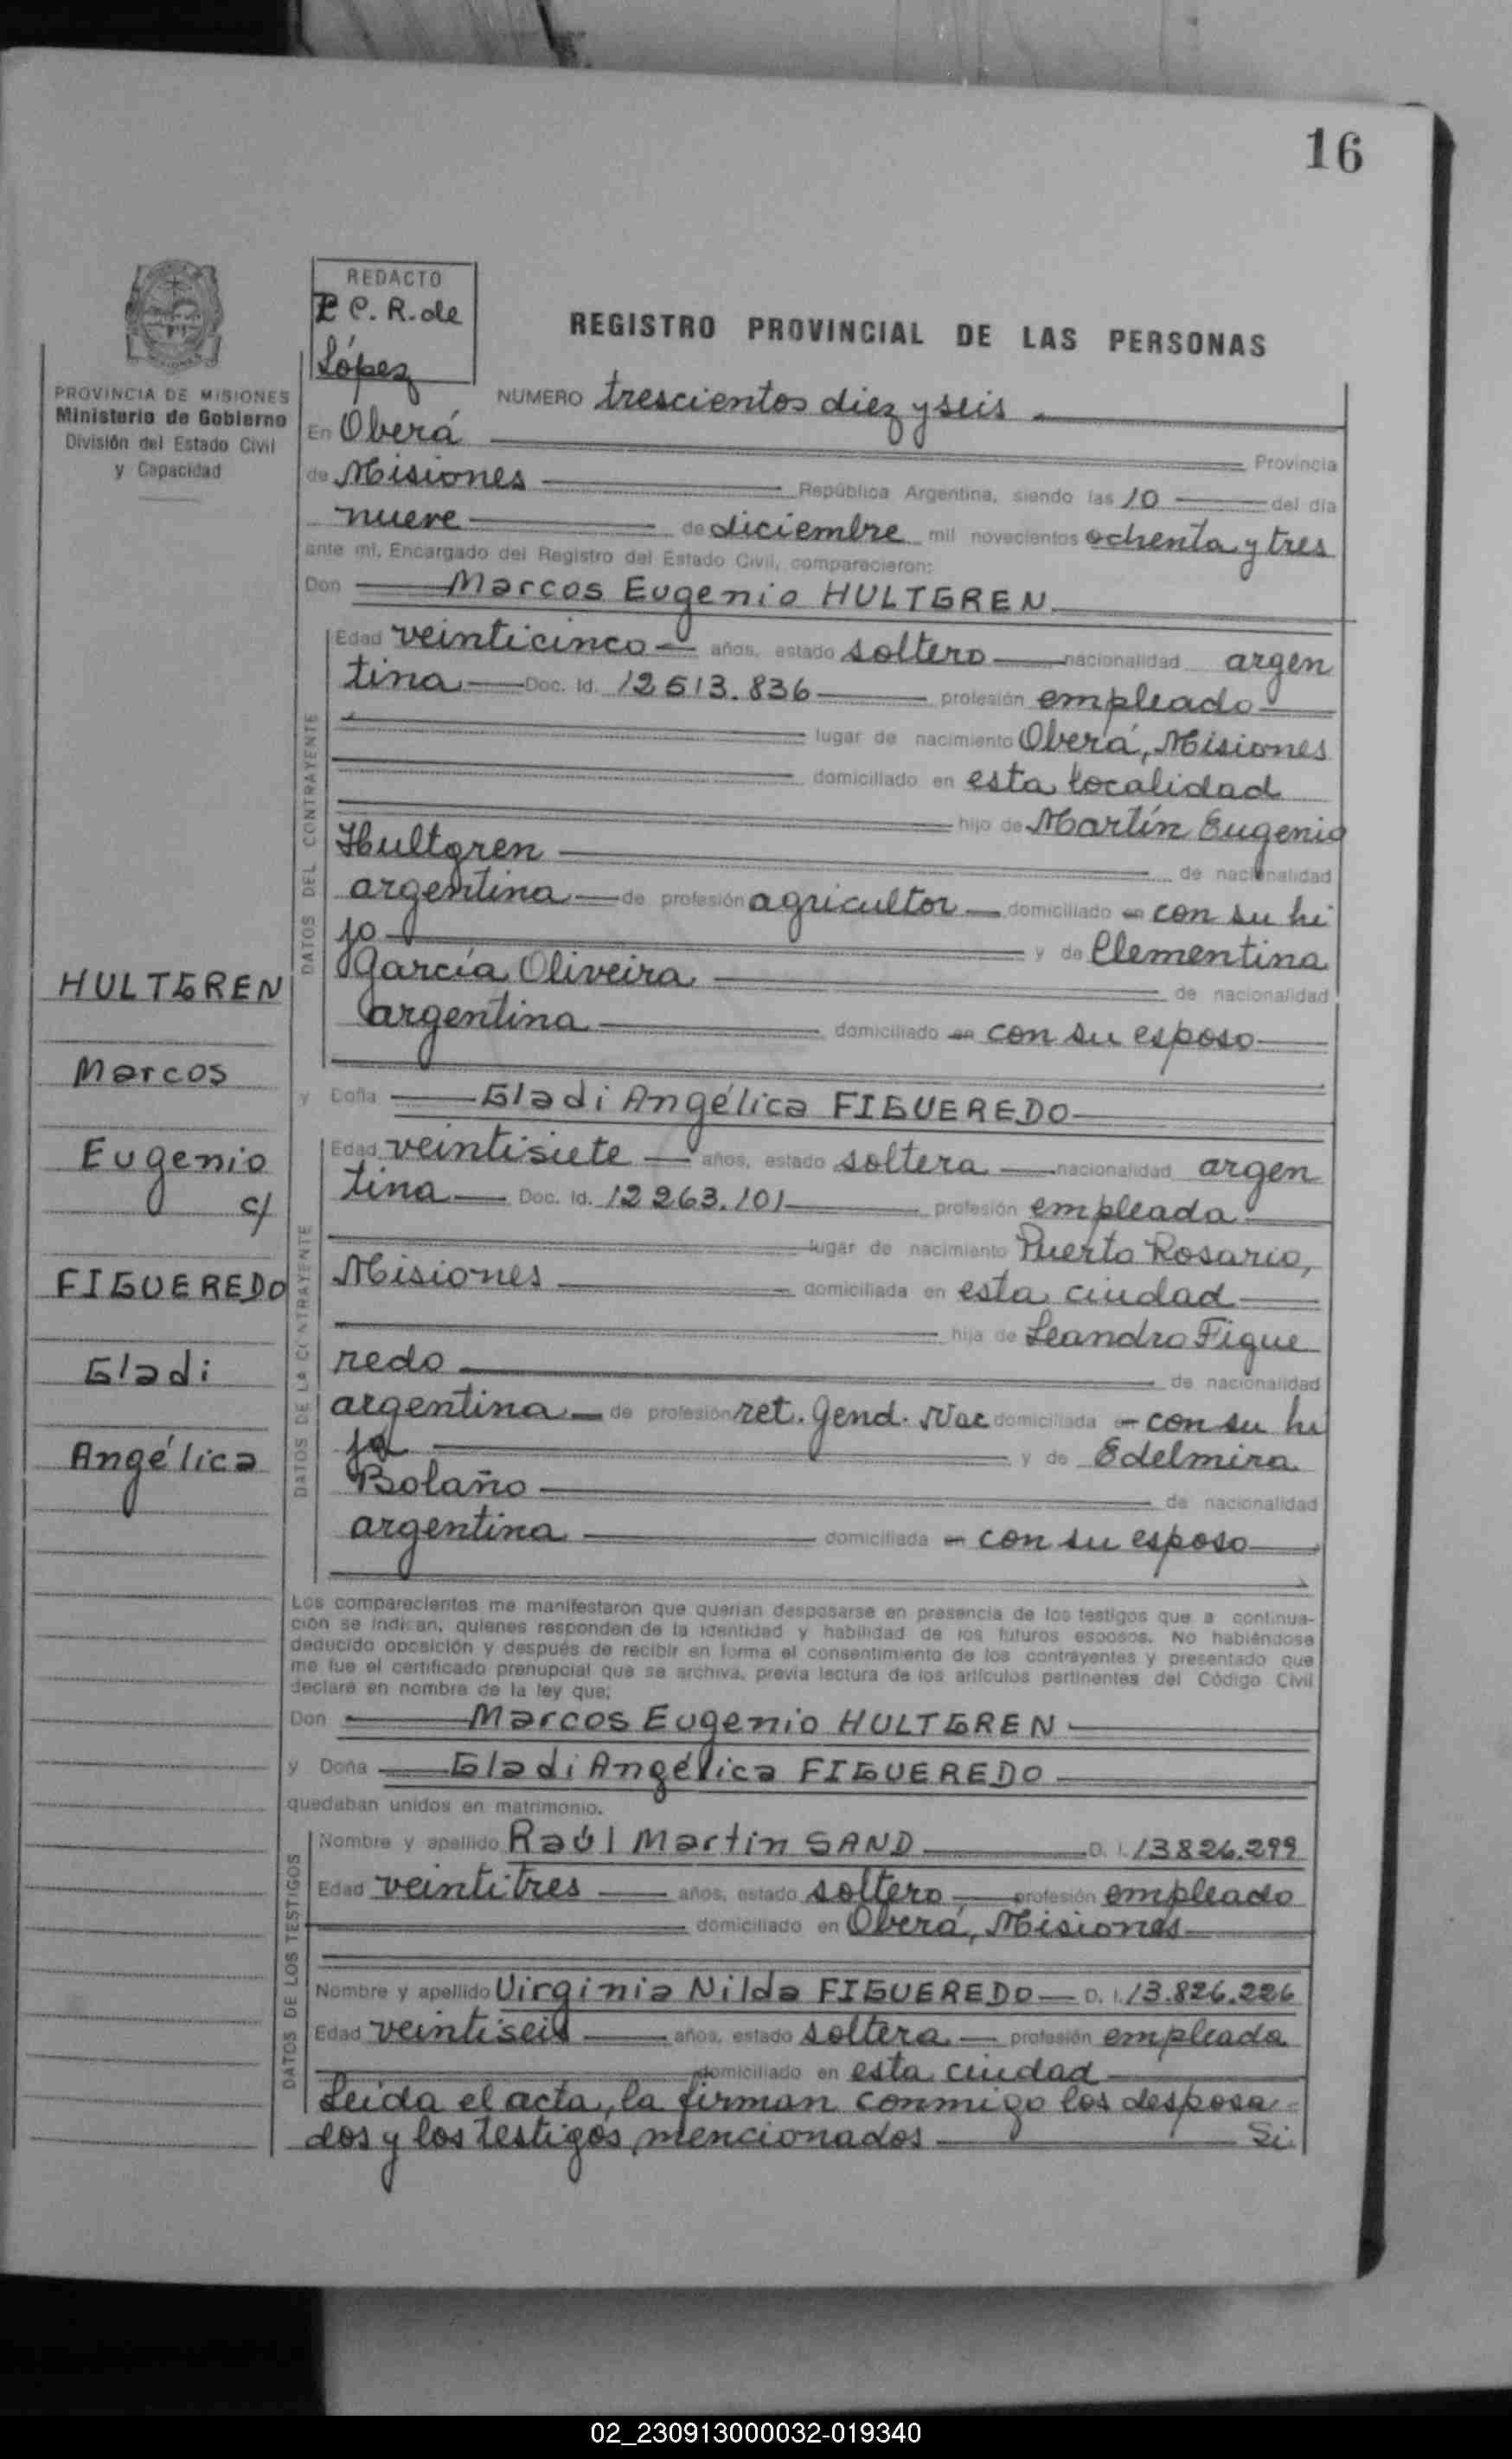 16
REDACTO
P C. R. de
López
REGISTRO PROVINCIAL DE LAS PERSONAS
PROVINCIA DE MISIONES
Ministerio de Gobierno
División del Estado Civil
y Capacidad
NUMERO trescientos diez y seis
En Oberá Provincia
de Misiones República Argentina, siendo las 10 del día
nueve de diciembre mil novecientos ochenta y tres
ante mí, Encargado del Registro del Estado Civil, comparecieron:
Don Marcos Eugenio HULTGREN
DATOS DEL CONTRAYENTE
Edad veinticinco años, estado soltero nacionalidad argen
tina Doc. Id. 12 513.836 profesión empleado
lugar de nacimiento Oberá, Misiones
domiciliado en esta localidad
hijo de Martín Eugenio
Hultgren de nacionalidad
argentina de profesión agricultor domiciliado en con su hi
jo y de Clementina
García Oliveira de nacionalidad
argentina domiciliado en con su esposo
HULTGREN
Marcos
Eugenio
c/
FIGUEREDO
Gladi
Angélica
y Doña Gladi Angélica FIGUEREDO
DATOS DE LA CONTRAYENTE
Edad veintisiete años, estado soltera nacionalidad argen
tina Doc. Id. 12 263.101 profesión empleada
lugar de nacimiento Puerto Rosario,
Misiones domiciliada en esta ciudad
hija de Leandro Figue
redo de nacionalidad
argentina de profesión ret. Gend. Nac domiciliada en con su hi
ja y de Edelmira
Bolaño de nacionalidad
argentina domiciliada en con su esposo
Los comparecientes me manifestaron que querían desposarse en presencia de los testigos que a continua-
ción se indican, quienes responden de la identidad y habilidad de los futuros esposos. No habiéndose
deducido oposición y después de recibir en forma el consentimiento de los contrayentes y presentado que
me fue el certificado prenupcial que se archiva, previa lectura de los artículos pertinentes del Código Civil
declaré en nombre de la ley que:
Don Marcos Eugenio HULTGREN
y Doña Gladi Angélica FIGUEREDO
quedaban unidos en matrimonio.
DATOS DE LOS TESTIGOS
Nombre y apellido Raúl Martin SAND D. I. 13826.299
Edad veintitres años, estado soltero profesión empleado
domiciliado en Oberá, Misiones
Nombre y apellido Virginia Nilda FIGUEREDO D. I. 13.826.226
Edad veintiseis años, estado soltera profesión empleada
domiciliado en esta ciudad
Leída el acta, la firman conmigo los desposa-
dos y los testigos mencionados Si
02_230913000032-019340